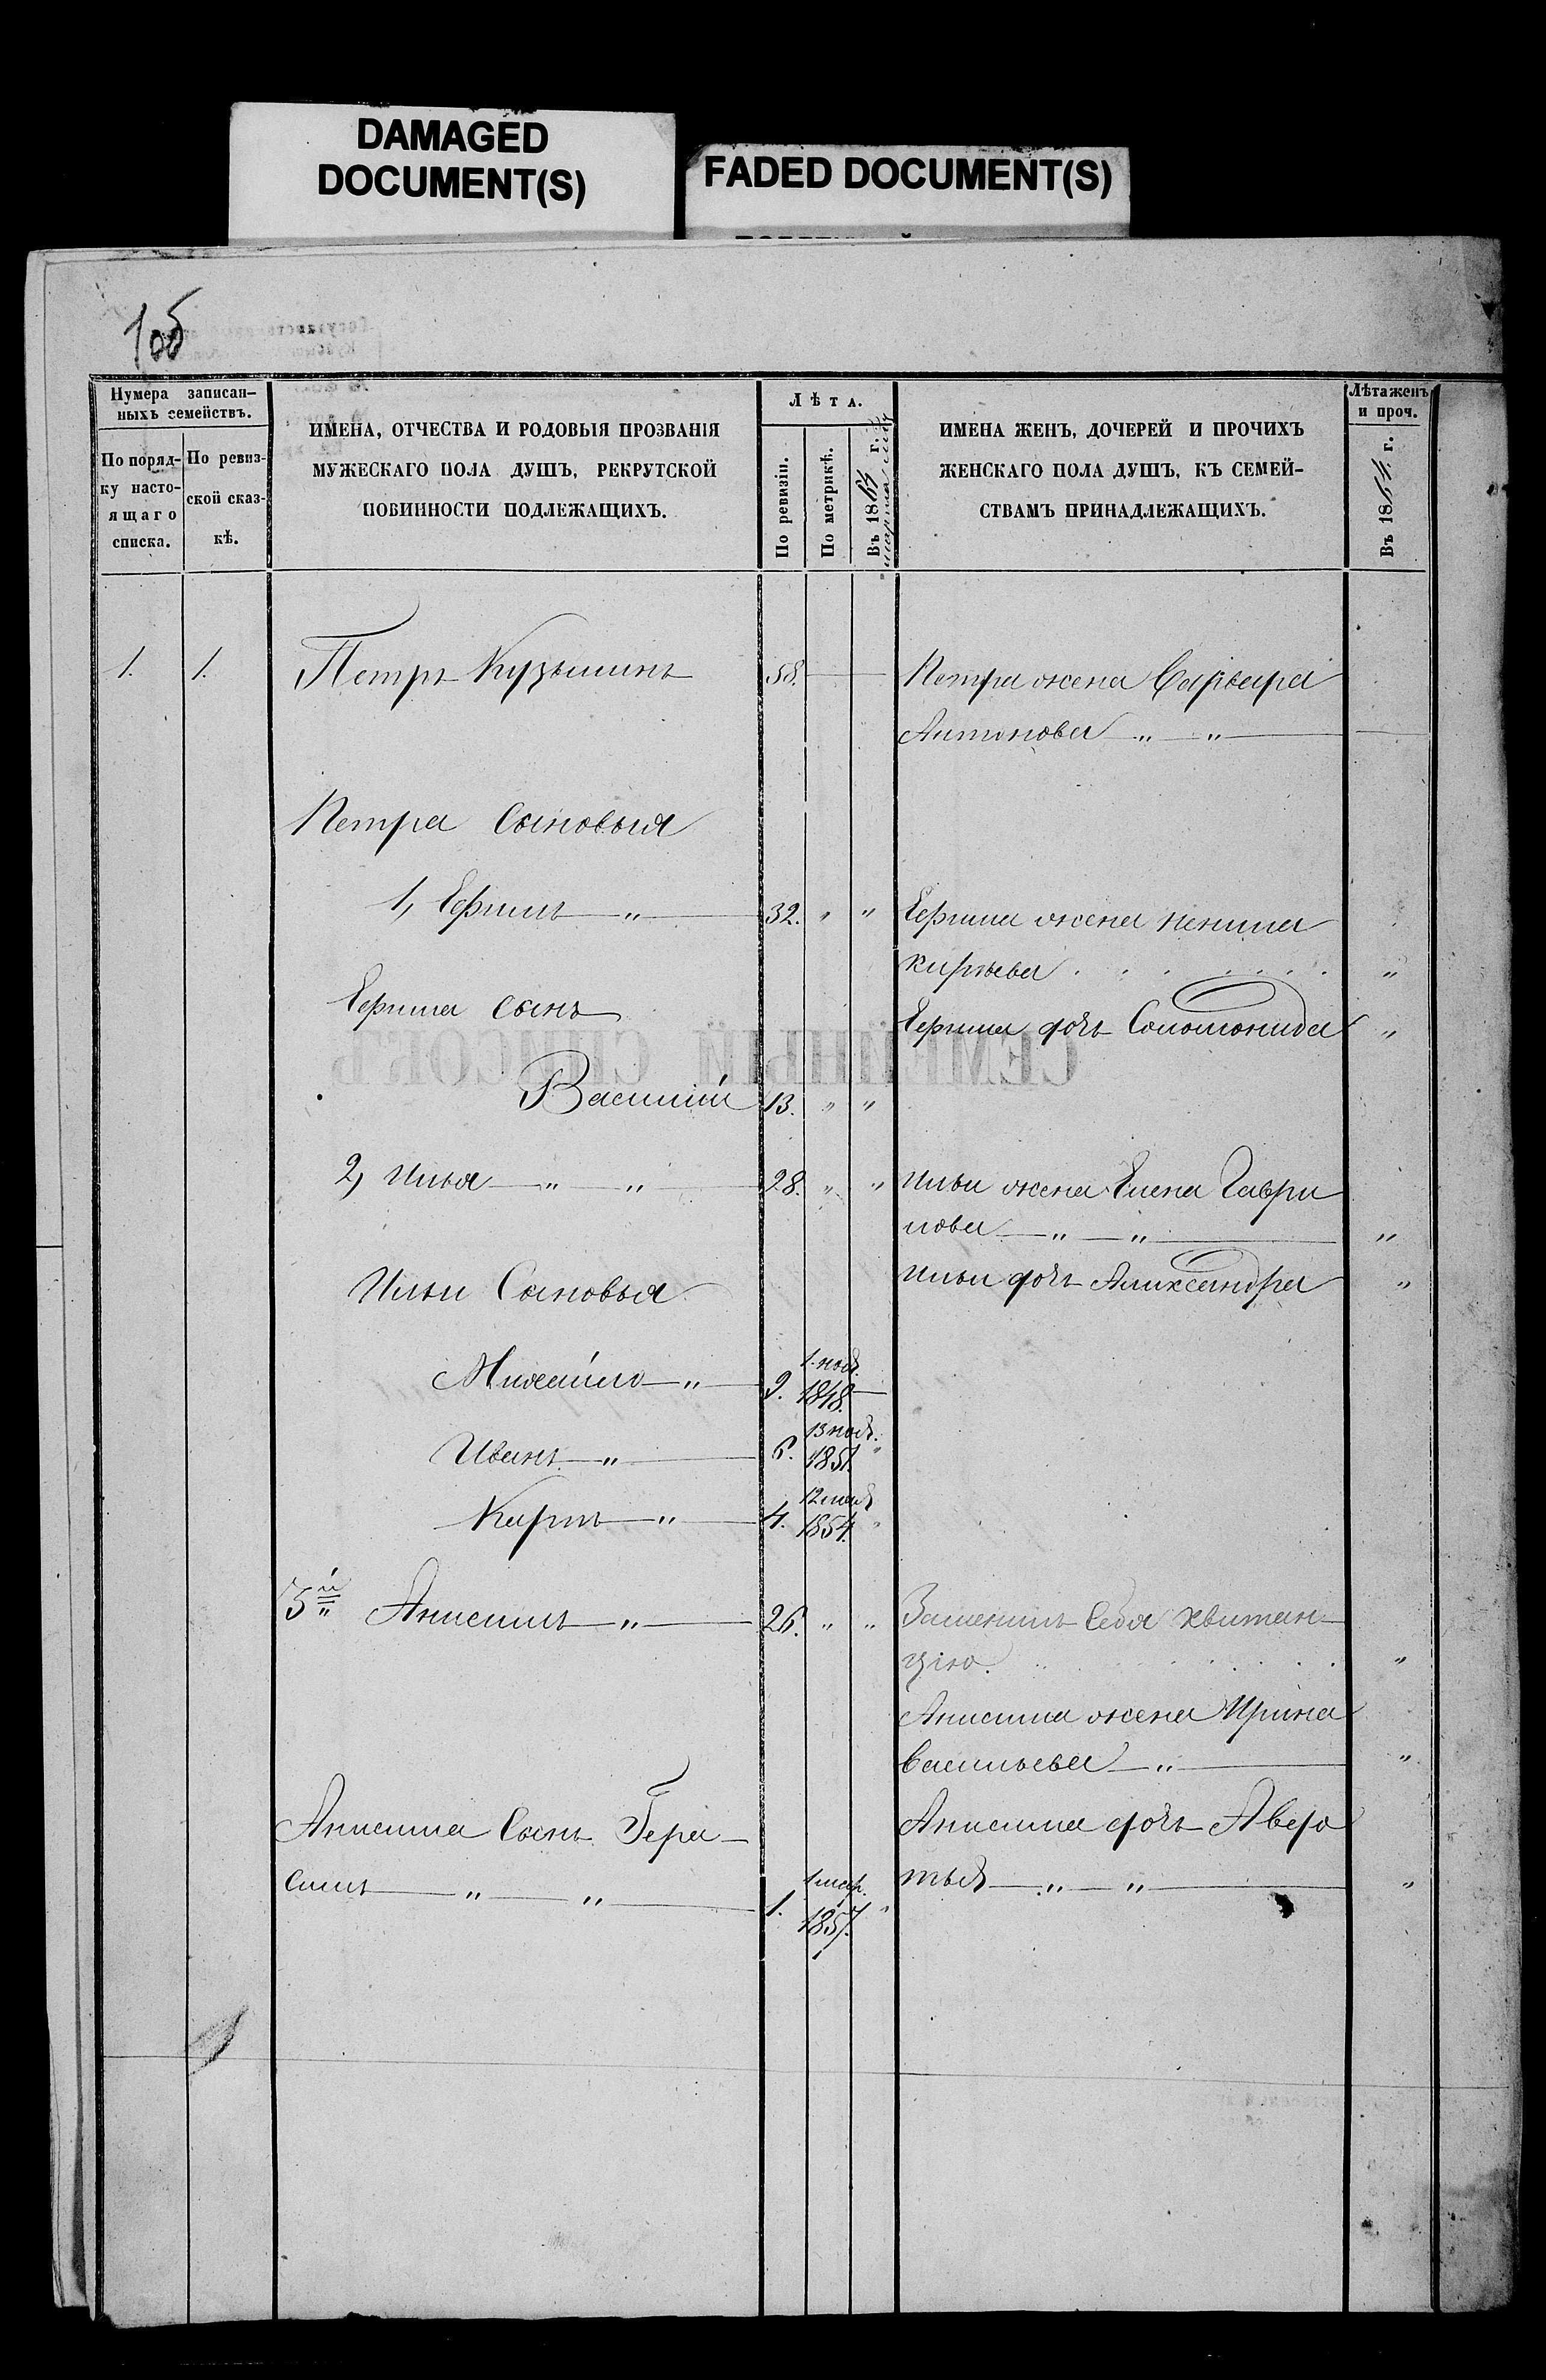 DAMAGED
DOCUMENT(S)
FADED DOCUMENT(S)
1об
Нумера записан-
ныхъ семействъ.
По поряд-
ку насто-
ящаго
списка.
По ревиз-
ской сказ-
кѣ.
ИМЕНА, ОТЧЕСТВА И РОДОВЫЯ ПРОЗВАНІЯ
МУЖЕСКАГО ПОЛА ДУШЪ, РЕКРУТСКОЙ
ПОВИННОСТИ ПОДЛЕЖАЩИХЪ.
Лѣта.
По ревизіи.
По метрикѣ.
Въ 1864 г.
ИМЕНА ЖЕНЪ, ДОЧЕРЕЙ И ПРОЧИХЪ
ЖЕНСКАГО ПОЛА ДУШЪ, КЪ СЕМЕЙ-
СТВАМЪ ПРИНАДЛЕЖАЩИХЪ.
Лѣта женъ
и проч.
Въ 1864 г.
1. 1. Петръ Кузьминъ 58. — Петра жена Варвара
Антонова „ „ —
Петра Сыновья
1, Ефимъ „ 32. „ „ Ефима жена
Кирѣева . . . . . . . „
Ефима Сынъ
Ефима дочь Соломонида „
СЕМЕЙНЫЙ СПИСОКЪ
Василій 13. „ „
2, Илья „ „ 28. „ „ Ильи жена Елена Гаври
лова „ „ „
Ильи Сыновья
Ильи дочь Александра „
Михайло „ 9. 1. нояб. 1848. —
Иванъ „ 6. 13 нояб. 1851. „
Карпъ „ 4. 12 мая 1854. „
3й Анисимъ „ 26. „ „ Заменилъ Себя квитан-
ціею. „
Анисима жена Ирина
Васильева „ „
Анисима Сынъ Гера-
Анисима дочь Авдо
симъ „ „ 1. 1 мар. 1857. „
тья „ „ „